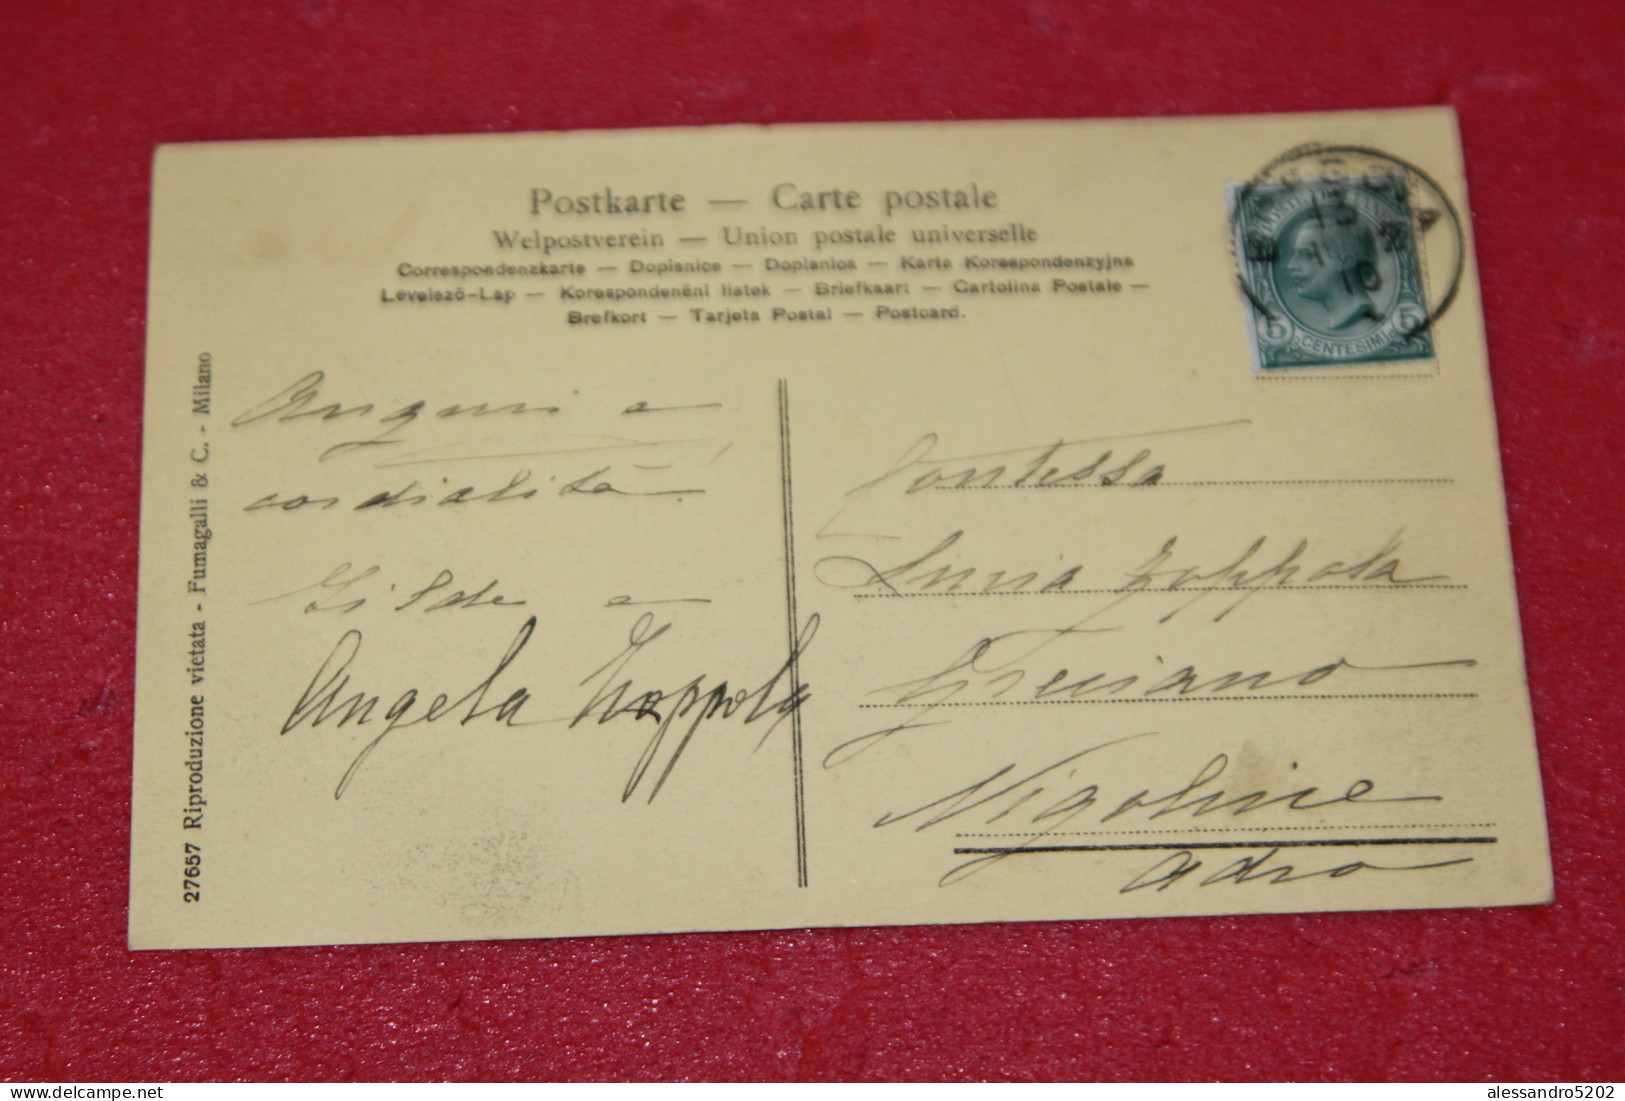 Postkarte — Carte postale
Welpostverein — Union postale universelle
Correspondenzkarte — Dopisnice — Dopisnica — Karta Korespondenzyjna
Levelező-Lap — Korespondenéni listek — Briefkaart — Cartolina Postale —
Brefkort — Tarjeta Postal — Postcard.
27657 Riproduzione vietata - Fumagalli & C. - Milano
Auguri e
cordialità.
Gilde e
Angela Zoppola
Contessa
Lucia Zoppola
Greciano
Nigoline
Adro
13
10
5 CENTESIMI 5
alessandro5202